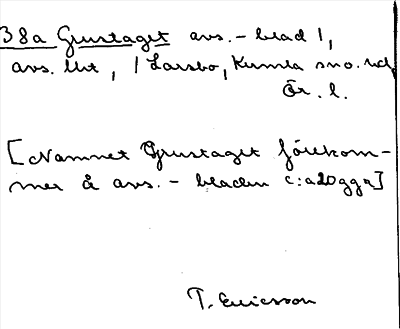 38a Grustaget avs.-blad 1,
avs. Utt, / Larsbo, Kumla sn o. hd
Ör. l.
[Namnet Grustaget förekom-
mer å avs.-bladen c:a 20 ggr]
T. Ericsson